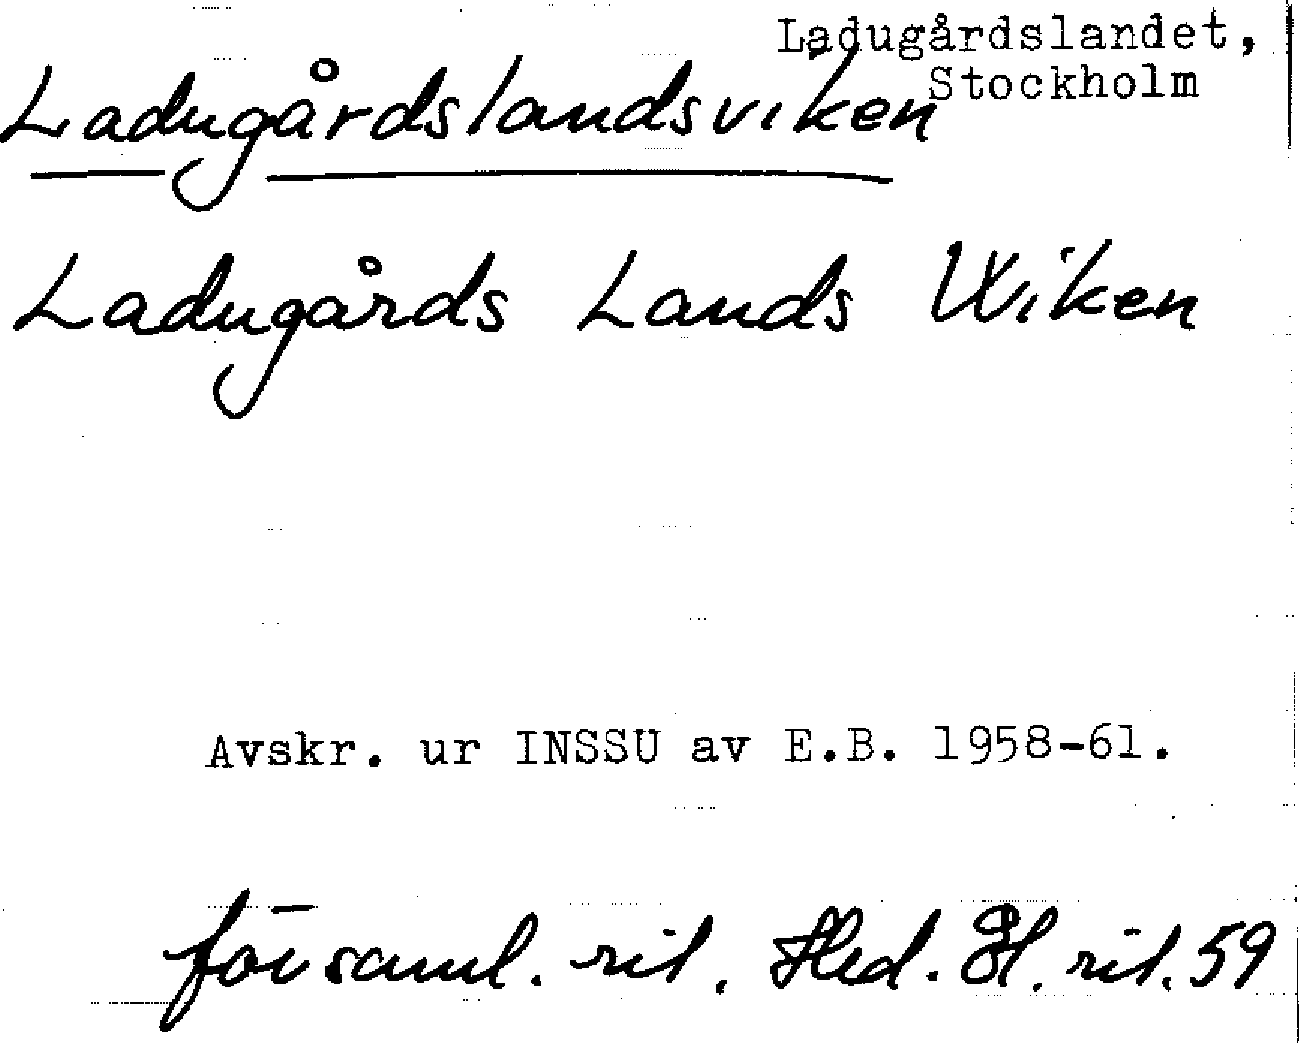 Ladugårdslandet,
Stockholm
Ladugårdslandsviken
Ladugårds Lands Wiken
Avskr. ur INSSU av E.B. 1958-61.
församl. rit. Hed. El. rit. 59